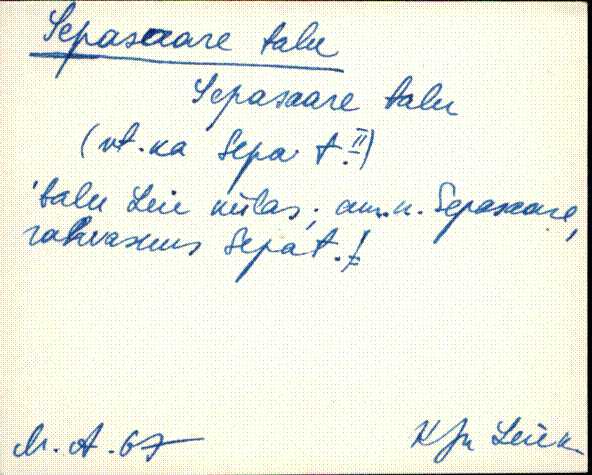 Sepasaare talu
Sepasaare talu
(vt. ka Sepa t. II)
'talu Leie külas; am. n. Sepasaare,
rahvasuus Sepa t.!
M. A. 67
KJn Leie k.